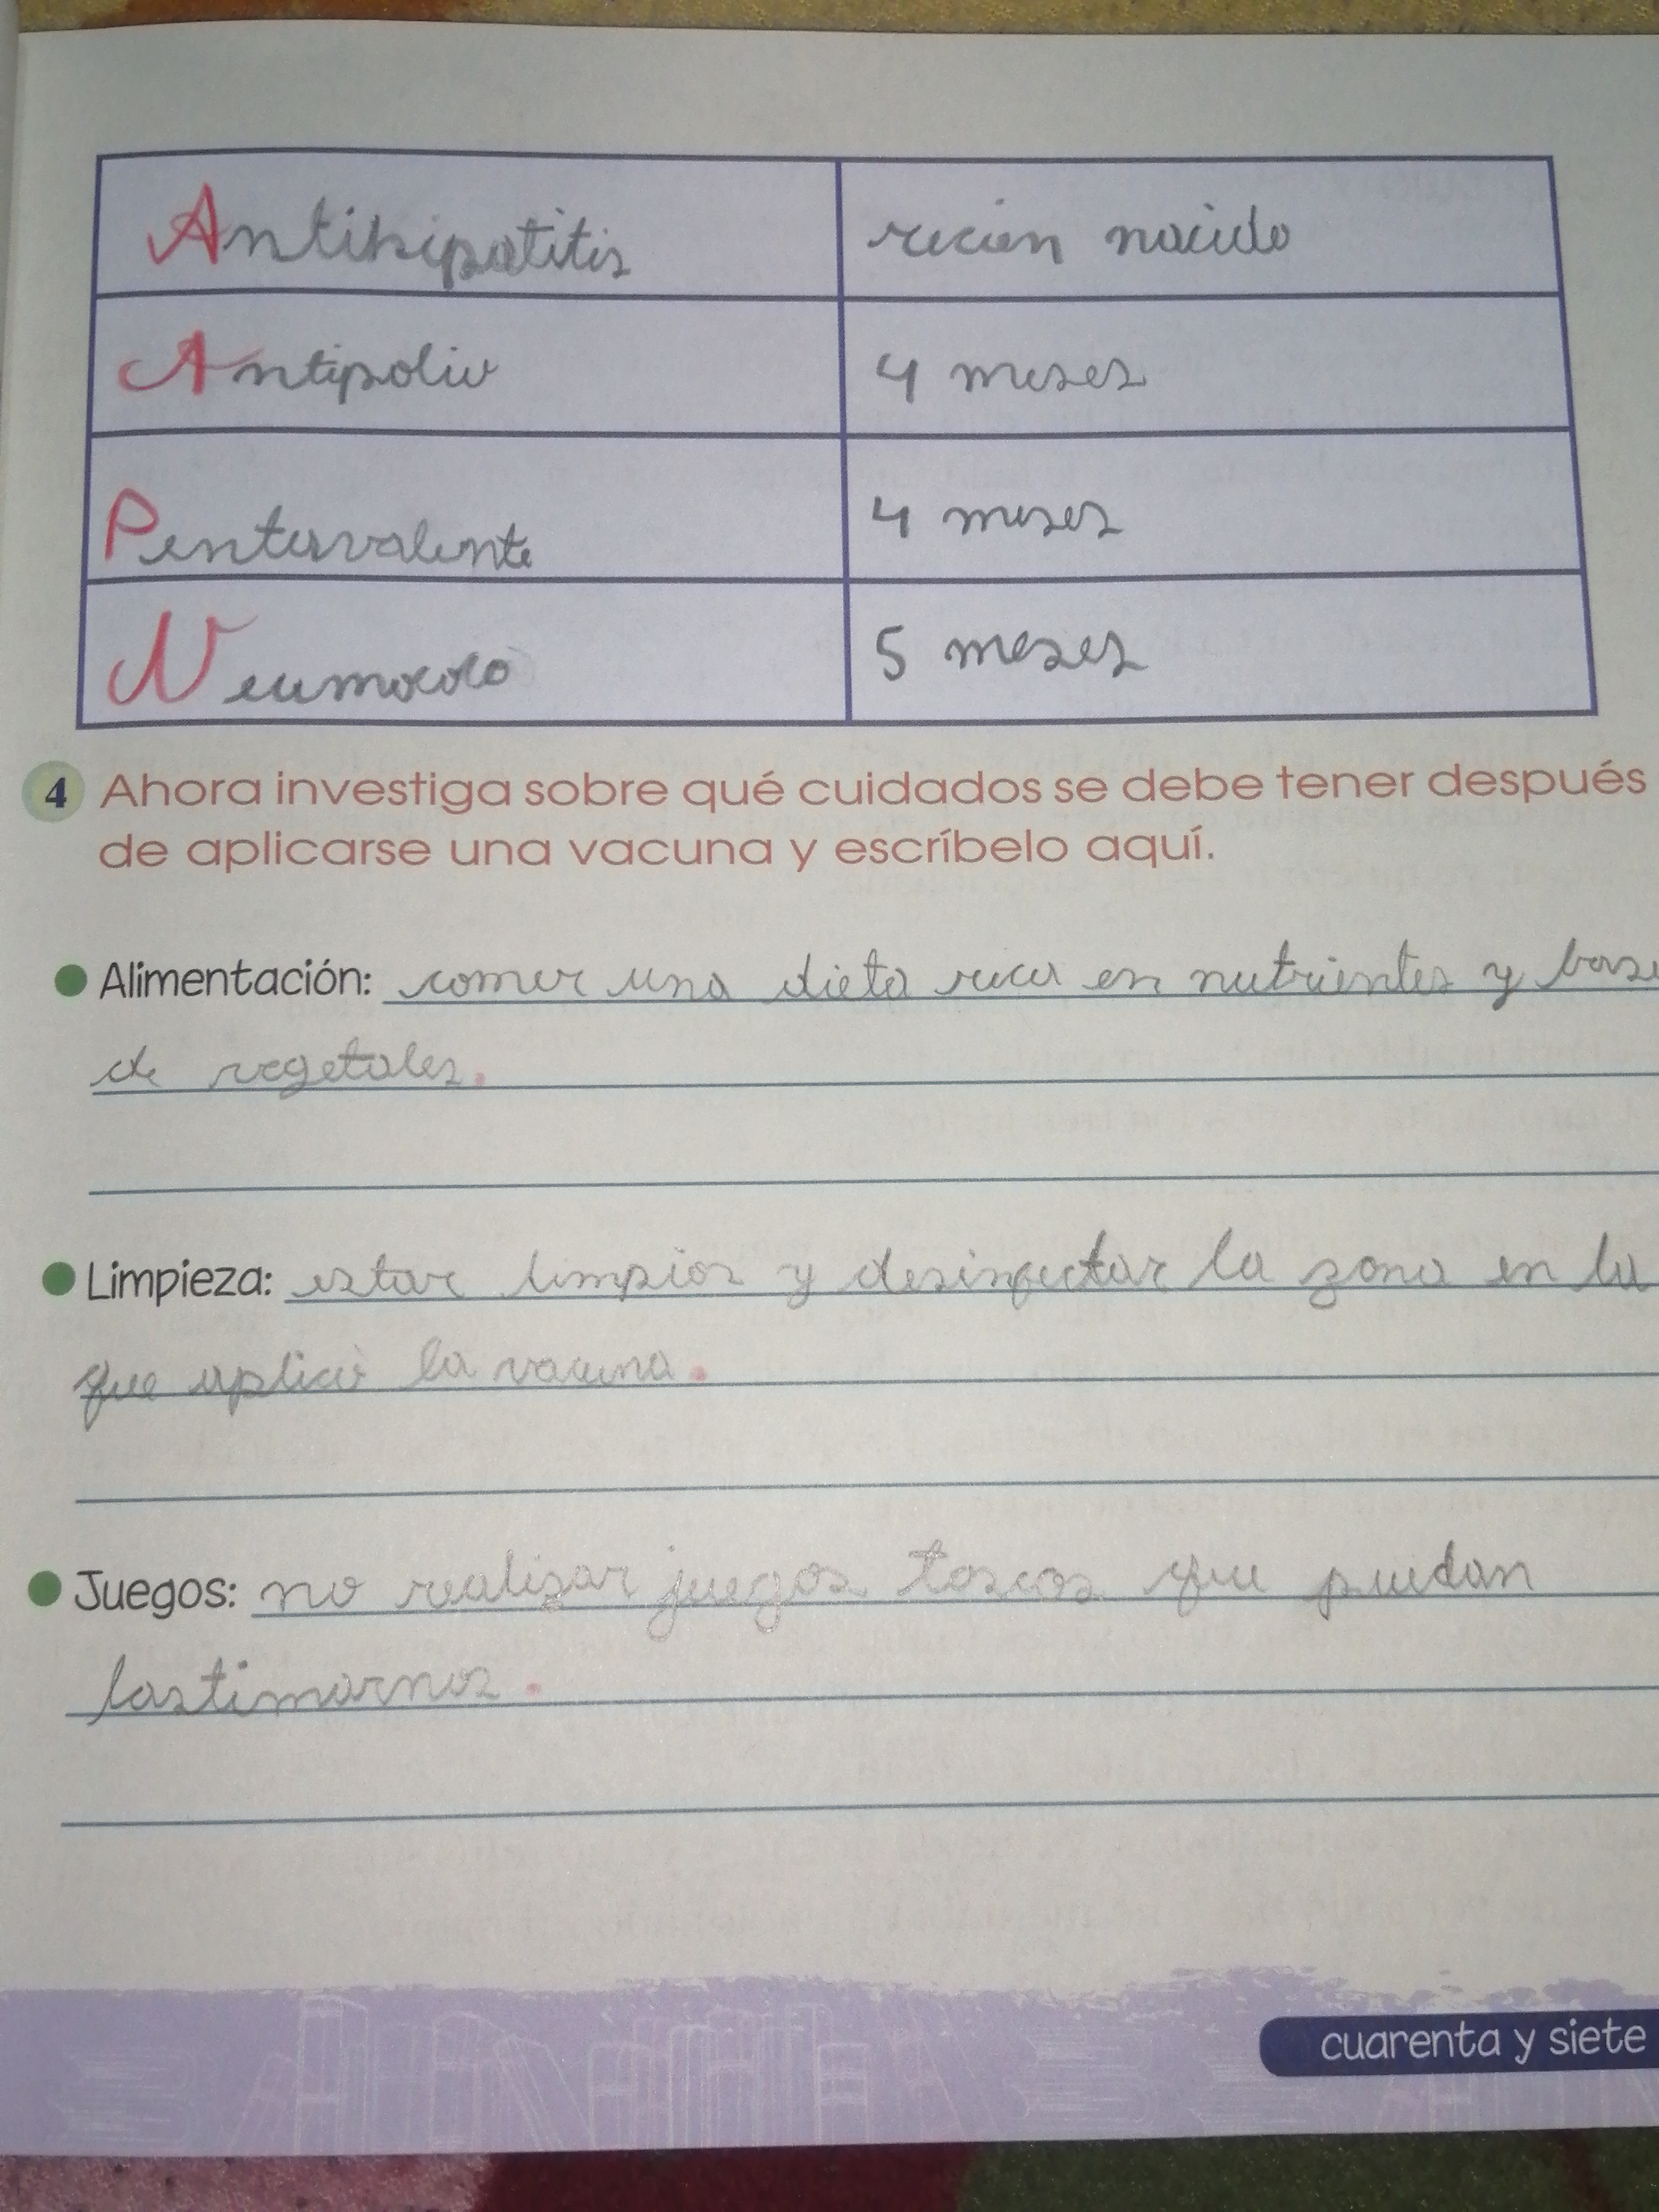 Antihipatitis recien nacido
Antipolio 4 meses
Pentavalente 4 meses
Neumococo 5 meses
4 Ahora investiga sobre qué cuidados se debe tener después
de aplicarse una vacuna y escríbelo aquí.
Alimentación: comer una dieta rica en nutrientes y base
de vegetales.
Limpieza: estar limpios y desinfectar la zona en la
que aplicó la vacuna.
Juegos: no realizar juegos toscos que puedan
lastimarnos.
cuarenta y siete